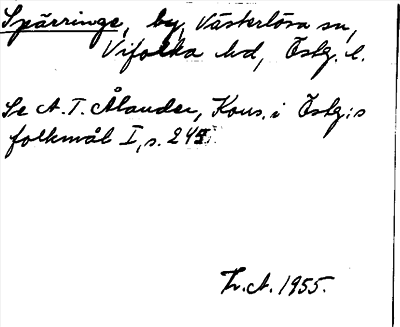 Spärringe, by, Västerlösa sn,
Vifolka hd, Östg. l.
Se A. T. Ålander, Kons. i Östg:s
folkmål I, s. 245.
A. 1955.